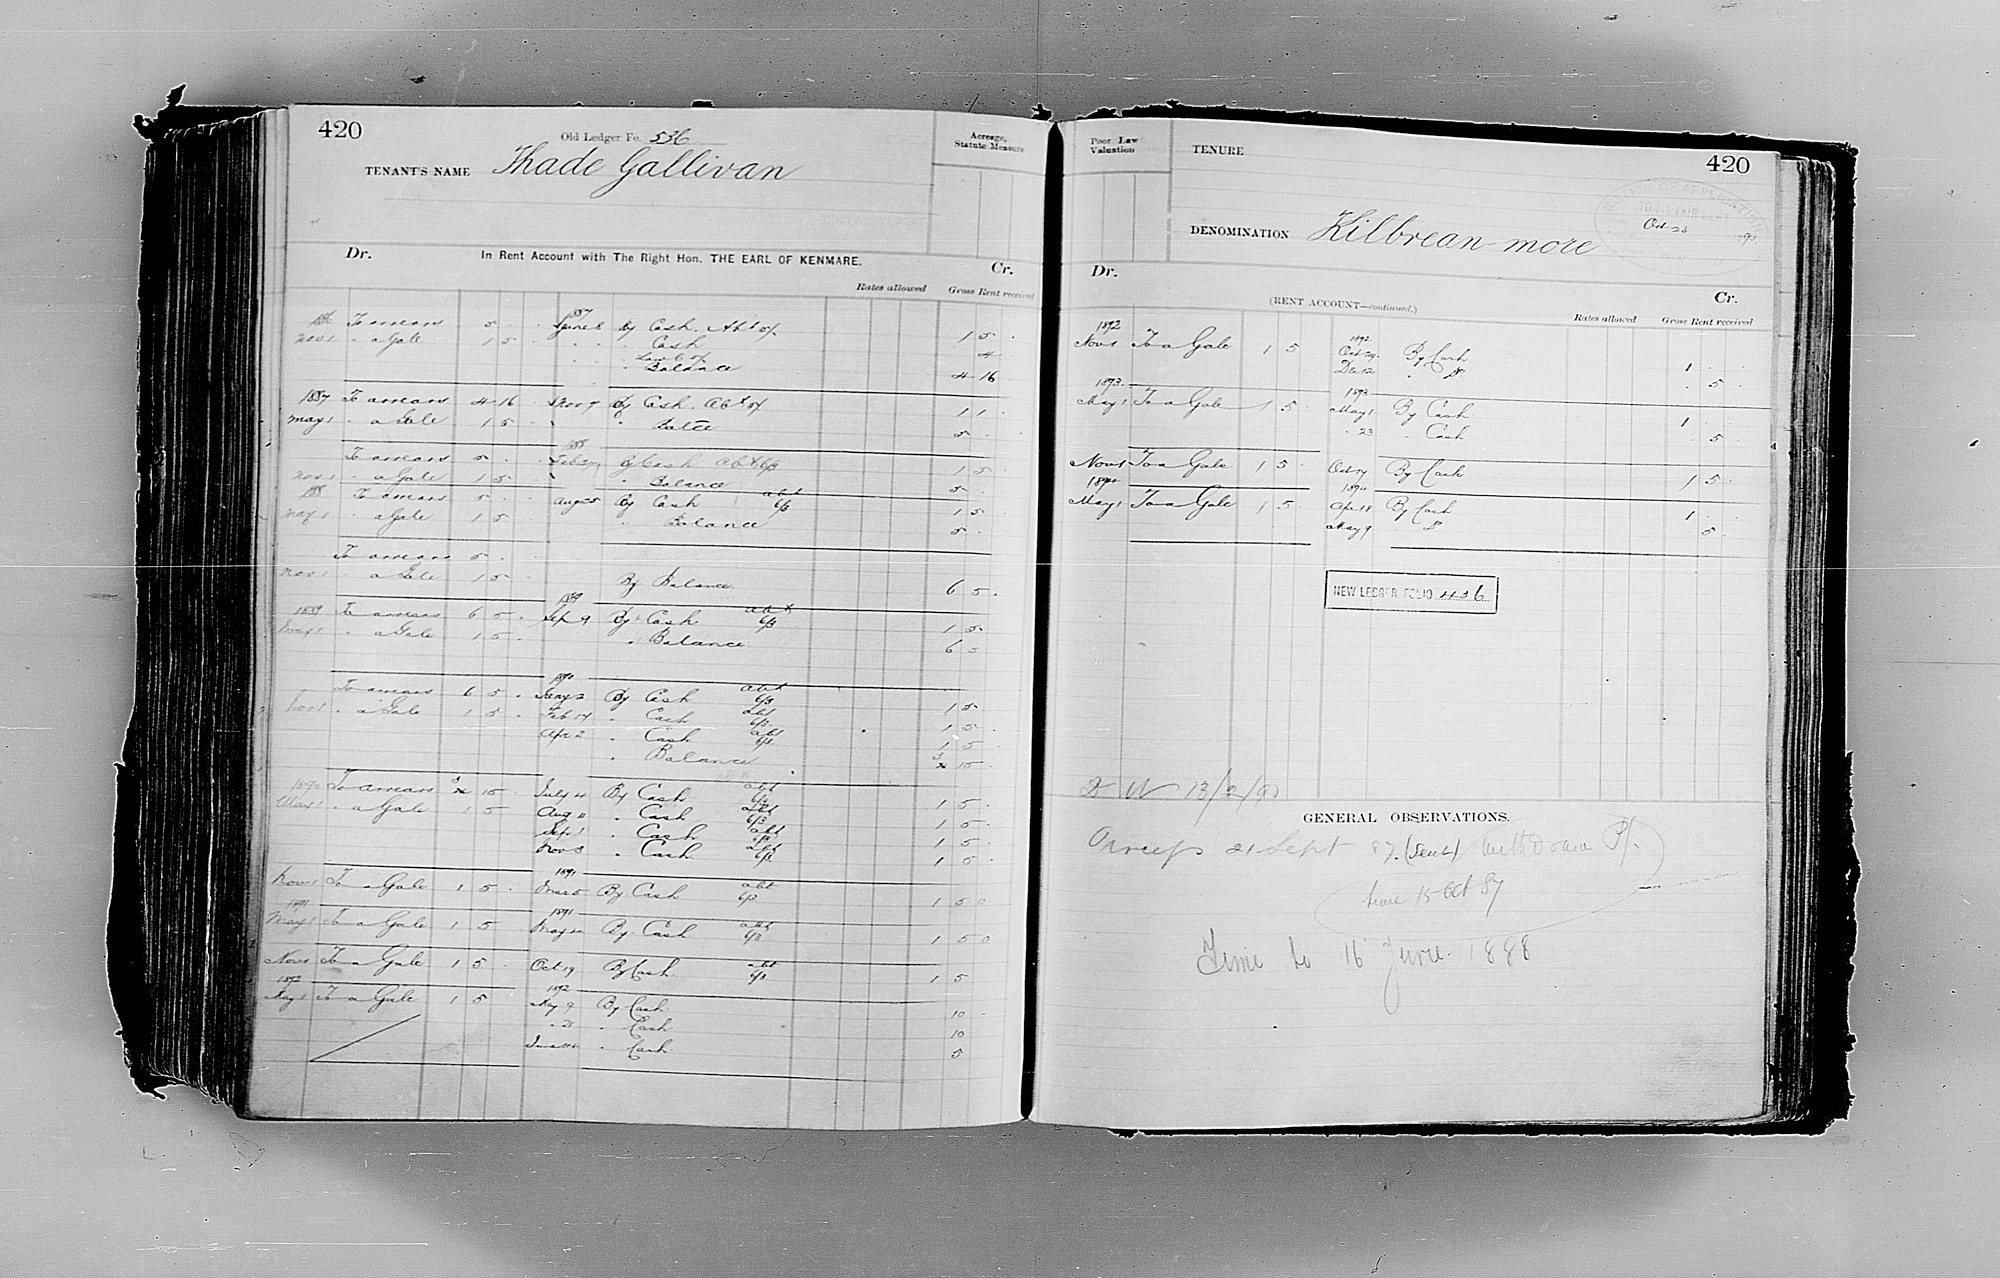 420
Old Ledger Fo. 536
TENANT'S NAME Thade Gallivan
Acreage, Statute Measure
Dr. In Rent Account with The Right Hon. THE EARL OF KENMARE. Cr.
Rates allowed Gross Rent received
1886 To arrears 5 . . 1887 June 8 By Cash. Abt 5/. 1 5 .
Nov 1 " a Gale 1 5 . " " Cash 4
" Balance 4 16
1887 To arrears 4 16 Nov 7 By Cash. Abt 5/ 1 1
May 1 " a Gale 1 5 . " Balce 5 .
To arrears 5 . 1888 By Cash abt 6/3 1 5
Nov 1 " a Gale 1 5 . " Balance 5 .
1888 To arrears 5 . . Aug 25 By Cash abt 6/3 1 5
May 1 " a Gale 1 5 " Balance 5 .
To arrears 5 . .
Nov 1 " a Gale 1 5 By Balance 6 5 .
1889 To arrears 6 5 . 1889 Sep 9 By Cash abt 6/3 1 5
May 1 " a Gale 1 5 . " Balance 6 5
To arrears 6 5 . 1890 Jany 2 By Cash abt 6/3 1 5
Nov 1 " a Gale 1 5 . Feb 14 " Cash abt 6/3 1 5
Apr 2 " Cash abt 6/3 1 5
" Balance 3 15 .
1890 To arrears 3 15 . July 4 By Cash abt 6/3 1 5 .
May 1 " a Gale 1 5 Aug 11 " Cash abt 6/3 1 5 .
Sept 1 " Cash abt 6/3 1 5
Nov 8 " Cash abt 1 5
Nov 1 To a Gale 1 5 . 1891 Mar 5 By Cash abt 6/3 1 5 0
1891 May 1 To a Gale 1 5 1891 May By Cash abt 6/3 1 5 0
Nov 1 To a Gale 1 5 . Oct 19 By Cash abt 6/3 1 5
1892 May 1 To a Gale 1 5 1892 May 9 By Cash 10 .
" 21 " Cash 10
June " Cash 5
Poor Law Valuation
TENURE
420
NOTICE OF APPLICATION
TO FIX FAIR RENT
Oct 23 1893
DENOMINATION Kilbrean-more
Dr. (RENT ACCOUNT—continued.) Cr.
Rates allowed Gross Rent received
1892 Nov 1 To a Gale 1 5 1892 Oct 29 By Cash 1 . .
Dec 12 " Do . 5 .
1893 May 1 To a Gale 1 5 . 1893 May 1 By Cash 1 . .
" 23 " Cash . 5 .
Nov 1 To a Gale 1 5 . Oct 17 By Cash 1 5 .
1894 May 1 To a Gale 1 5 . 1894 Apr 18 By Cash 1 . .
May 9 " Do 5 .
NEW LEDGER FOLIO 436
13/2/90
GENERAL OBSERVATIONS.
21 Sept 87. (Sent) Withdraw
time 15 Oct 87
Time to 16 June. 1888